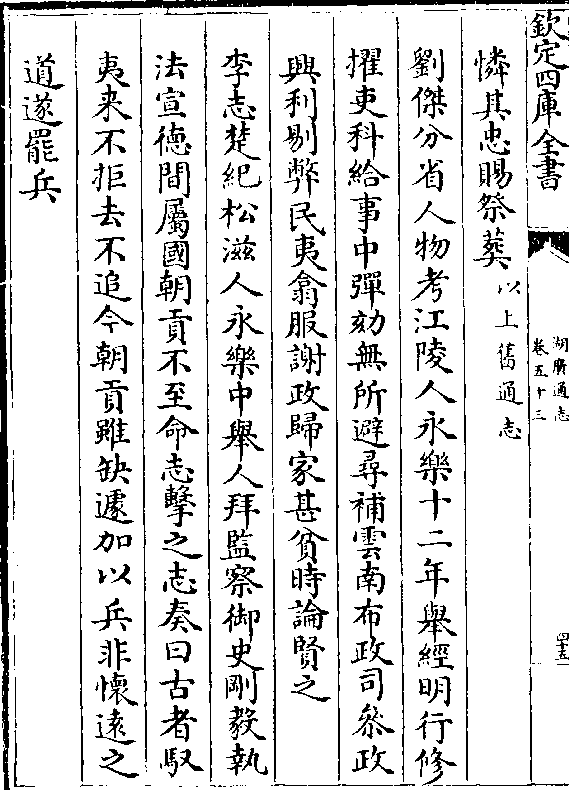 欽定四庫全書
湖廣通志
卷五十三
四五
憐其忠賜祭葬以上舊通志
劉傑分省人物考江陵人永樂十二年舉經明行修
擢吏科給事中彈劾無所避尋補雲南布政司叅政
興利剔弊民夷翕服謝政歸家甚貧時論賢之
李志楚紀松滋人永樂中舉人拜監察御史剛毅執
法宣德間屬國朝貢不至命志擊之志奏曰古者馭
夷来不拒去不追今朝貢雖缺遽加以兵非懷遠之
道遂罷兵